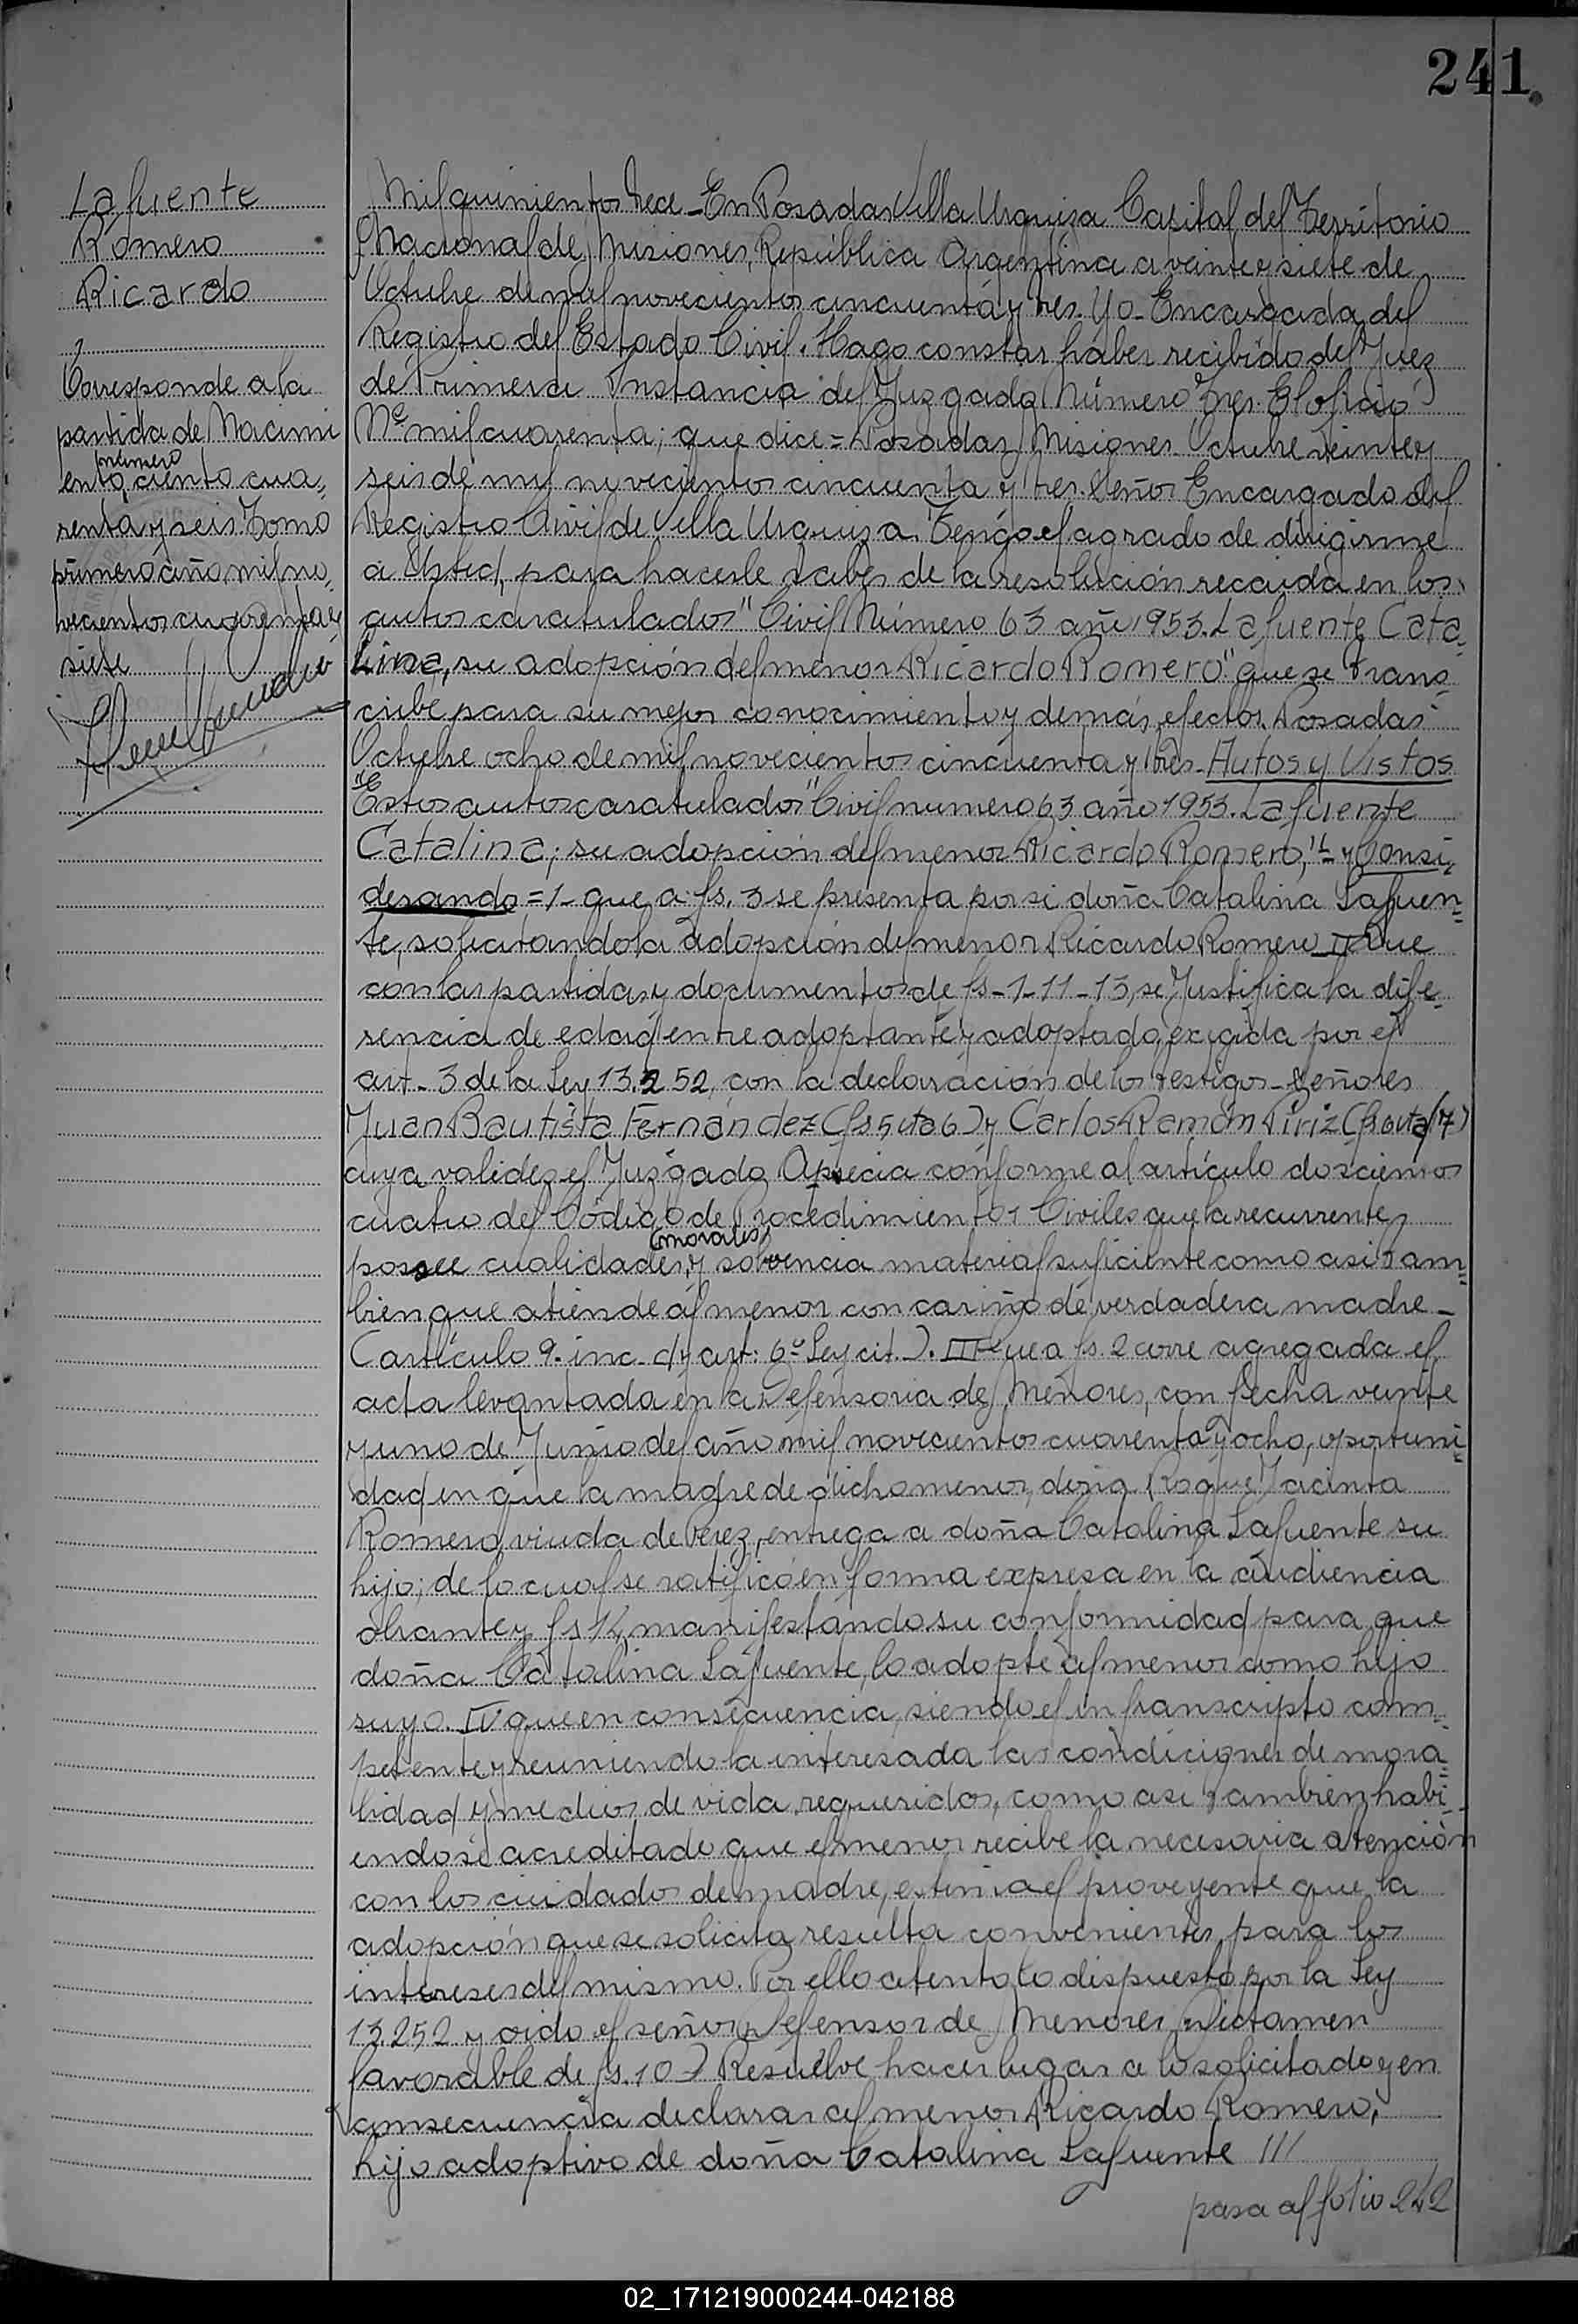 241
Lafuente
Romero
Ricardo
Corresponde a la
partida de Nacimi
ento número ciento cua=
renta y seis Tomo
primero año mil no,
vecientos cuarenta y
siete
Mil quinientos trece - En Posadas Villa Urquiza Capital del Territorio
Nacional de Misiones, República Argentina a veinte y siete de
Octubre de mil novecientos cincuenta y tres. Yo - Encargada del
Registro del Estado Civil. Hago constar haber recibido del Juez
de Primera Instancia del Juzgado Número Tres. El oficio
Nº mil cuarenta; que dice = Posadas Misiones Octubre veinte y
seis de mil novecientos cincuenta y tres. Señor Encargado del
Registro Civil de Villa Urquiza. Tengo el agrado de dirigirme
a Usted, para hacerle saber de la resolución recaida en los
autos caratulados "Civil Número 63 año 1953. Lafuente Cata=
lina, su adopción del menor Ricardo Romero" que se trans=
cribe para su mejor conocimiento y demás efectos. Posadas
Octubre ocho de mil novecientos cincuenta y tres - Autos y Vistos
"Estos autos caratulados "Civil numero 63 año 1953. Lafuente
Catalina; su adopción del menor Ricardo Romero," - y Consi=
derando = 1 - que a fs. 3 se presenta por si doña Catalina Lafuen=
te, solicitando la adopción del menor Ricardo Romero II Que
con las partidas y documentos de fs - 1 - 11 - 13, se Justifica la dife=
rencia de edad entre adoptante y adoptado, exigida por el
art - 3 de la Ley 13.252, con la declaración de los testigos - Señores
Juan Bautista Fernández (fs 5 vta 6) y Carlos Ramón Píriz (fs 6 vta/7)
cuya validez el Juzgado Aprecia conforme al artículo doscientos
cuatro del Código de Procedimientos Civiles que la recurrente
possee cualidades (morales) y solvencia material suficiente como asi tam=
bien que atiende al menor con cariño de verdadera madre -
(artículo 9. inc - d y art: 6º Ley cit.). III Que a fs. 2 corre agregada el
acta levantada en la Defensoria de Menores, con fecha veinte
y uno de Junio del año mil novecientos cuarenta y ocho, oportuni=
dad en que la madre de dicho menor, doña Roque Jacinta
Romero viuda de Perez, entrega a doña Catalina Lafuente su
hijo; de lo cual se ratificó en forma expresa en la audiencia
obrante y fs 12, manifestando su conformidad para que
doña Catalina Lafuente, lo adopte al menor como hijo
suyo. IV que en consecuencia, siendo el infranscripto com=
petente y reuniendo la interesada las condiciones de mora=
lidad y medios de vida requeridos, como asi tambien habi=
endose acreditado que el menor recibe la necesaria atención
con los cuidados de madre, estima el proveyente que la
adopción que se solicita resulta convenientes, para los
intereses del mismo. Por ello atento lo dispuesto por la Ley
13.252 y oido el señor Defensor de Menores Dictamen
favorable de fs. 10 -) Resuelve hacer lugar a lo solicitado y en
consecuencia declarar al menor Ricardo Romero,
hijo adoptivo de doña Catalina Lafuente ///
pasa al folio 242
02_171219000244-042188